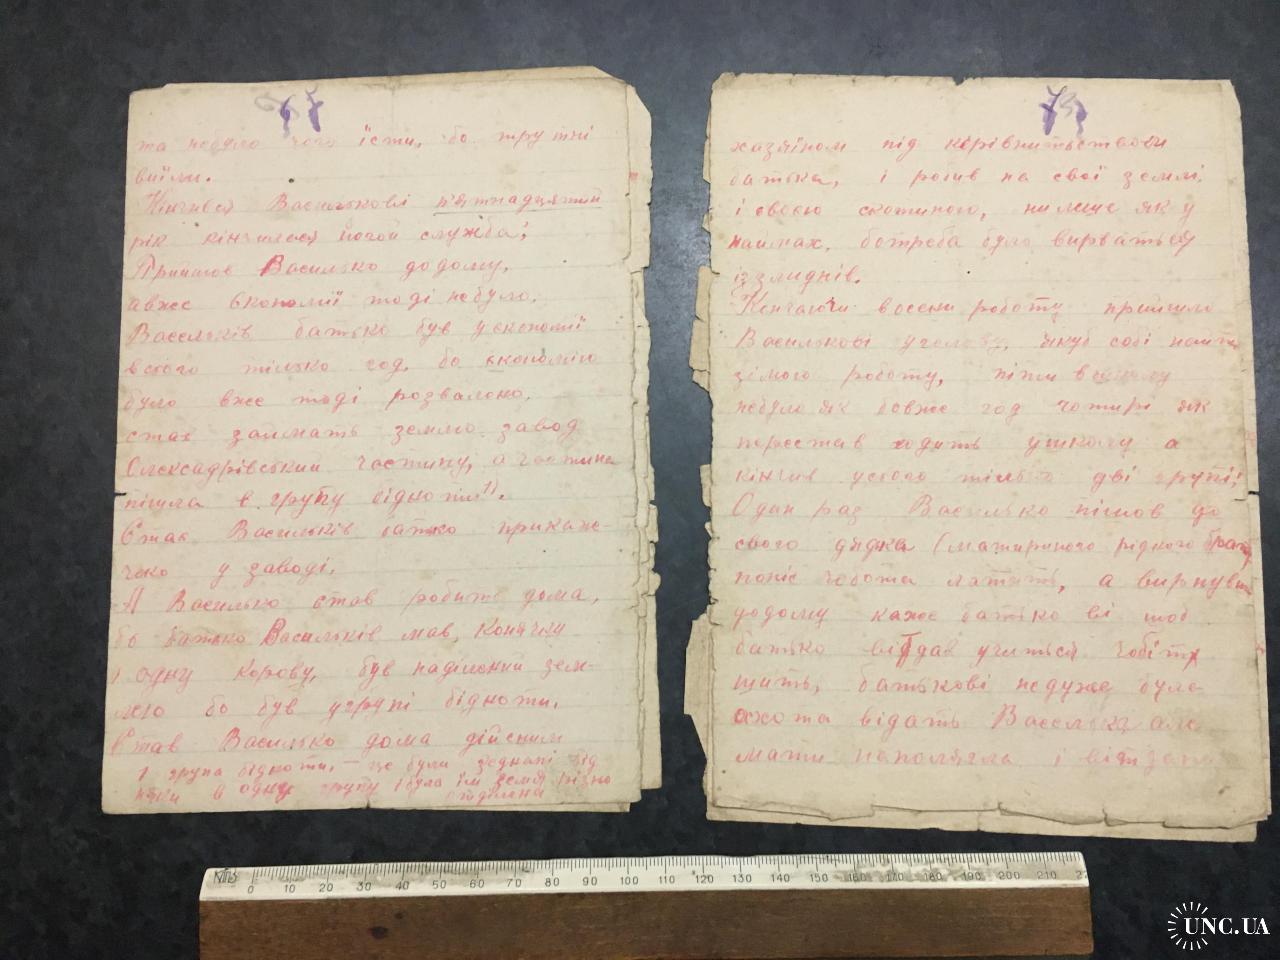 67
та небуло чого їсти, бо трутні
виїли.
Кінчився Василькові п'ятнадцятий
рік кінчилася його й служба;
Прийшов Василько додому,
авже економії тоді небуло.
Васильків батько був уекономії
всього тілько год, бо економію
було вже тоді розвалено.
стах займать землю завод
Олександрівський частину, а частина
пішла в групу бідноти¹⁾.
Став Васильків батько прикаже-
чеко у заводі.
А Василько став робить дома,
бо батько Васильків мав, Конячку
і одну корову, був наділений зем-
лею бо був угрупі бідноти.
Став Василько дома дійсним
1 група бідноти, — це були зєднані бід
няки в одну групу і була їм земля різно
отділена
73
хазяїном під керівництвом
батька, і робив на свої землі
і своєю скотиною, нилише як у
наймах. ботреба було вирваться
іззлиднів.
Кончаючи восени роботу прийшло
Василькові уголову, якуб собі найти
зімого роботу, піти вшколу
небуло як бовже год чотирі як
перестав ходить ушколу а
кінчив усього тілько дві групі;
Один раз Василько пішов до
свого дядка (матириного рідного брата)
поніс чобота латать, а вирнувш
додому каже батько ві щоб
батько віддав учиться чобіт
шить, батькові недуже було
охота відать Василька але
мати наполягла і відали
0 10 20 30 40 50 60 70 80 90 100 110 120 130 140 150 160 170 180 190 200 210
UNC.UA